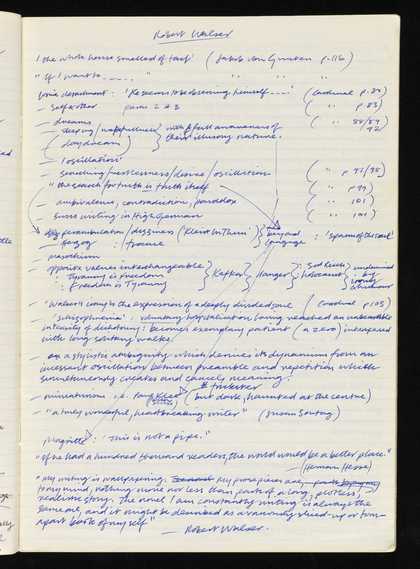 Robert Walser
'the whole house smelled of (Jakob von Gunten p.116)
"If I want to - - - - "  "  "  "
'He seems to be dreaming himself - - - -' (Cardinal p. 84)
- Self & other  ( " p. 83)
- dreams ( " 88/89
- sleeping / wakefulness with a full awareness of 92)
(daydream) their illusory nature.
- 'oscillation'
- searching / restlessness / dance / oscillation ( " p. 97/98)
- "the search for truth is truth itself ( " p. 99)
- ambivalence, contradiction, paradox ( " 101)
- Swiss writing in High German ( " 101)
- perambulation / dizziness (Kleist in Thun) beyond language : 'spasm of the soul'
- masochism
- opposite values interchangeable
: Tyranny is freedom Kafka danger Holocaust
: Freedom is Tyranny
- 'Walser's way is the expression of a deeply divided zone' (Cardinal p. 103)
- 'schizophrenia' : voluntary hospitalisation having reached an unbearable
intensity of dichotomy : becomes exemplary patient (a zero) interspersed
with long solitary walks.
- on a stylistic ambiguity which derives its dynamism from an
incessant oscillation between preamble and repetition which
simultaneously creates and cancels meaning.
trickster
- miniaturism i.e. Paul Klee (but dark, haunted at the centre)
- "a truly wonderful, heartbreaking writer" (Susan Sontag)
Magritte : 'This is not a pipe.'
"If he had a hundred thousand readers, the world would be a better place."
- (Herman Hesse)
"My writing is wallpapering. My prose pieces are,
to my mind, nothing more nor less than parts of a long, plotless,
realistic story. The novel I am constantly writing is always the
same one, and it might be described as a variously sliced-up or torn-
apart book of myself"
- Robert Walser.